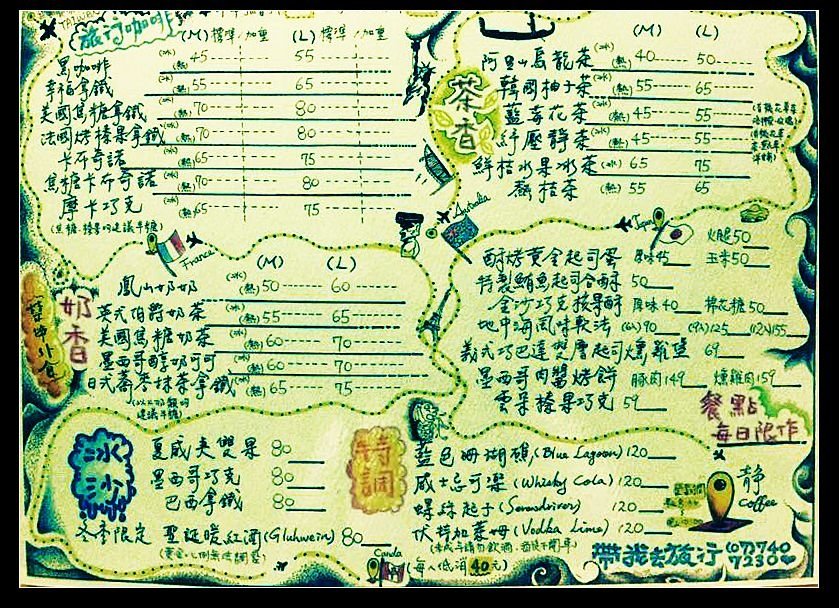 TAIWAN
旅行咖啡 (M)標準/加重 (L)標準/加重
黑咖啡 (冰)(熱) 45 55
幸福拿鐵 (冰)(熱) 55 65
美國焦糖拿鐵 (冰)(熱) 70 80
法國烤榛果拿鐵 (冰)(熱) 70 80
卡布奇諾 (冰)(熱) 65 75
焦糖卡布奇諾 (冰)(熱) 70 80
摩卡巧克 (冰)(熱) 65 75
France
奶香
(M) (L)
鳳山奶奶 (冰)(熱) 50 60
英式伯爵奶茶 (冰)(熱) 55 65
美國焦糖奶茶 (冰)(熱) 60 70
墨西哥醇奶可可 (冰)(熱) 60 70
日式蕎麥抹茶拿鐵 (冰)(熱) 65 75
冰沙
夏威夷雙果 80
墨西哥巧克 80
巴西拿鐵 80
冬季限定 聖誕暖紅酒(Gluhwein) 80
茶香
(M) (L)
阿里山烏龍茶 (冰)(熱) 40 50
韓國柚子茶 (冰)(熱) 55 65
藍莓花茶 (冰)(熱) 45 55
紓壓靜茶 (冰)(熱) 45 55
鮮桔水果冰茶 (冰) 65 75
熱桔茶 (熱) 55 65
Australia
Japan
火腿50
酥烤黃金起司蛋 原味45 玉米50
特製鮪魚起司合酥 50
金沙巧克核果酥 原味40 棉花糖50
地中海風味軟法 (6入)90 (9入)125 (12入)155
義式巧巴達雙層起司燻雞堡 69
墨西哥肉醬烤餅 豚肉149 燻雞肉159
雲朵榛果巧克 59
餐點
每日限作
特調
藍色珊瑚礁,(Blue Lagoon) 120
威士忌可樂 (Whisky Cola) 120
螺絲起子 (Screwdriver) 120
伏特加萊姆 (Vodka Lime) 120
(每人低消40元)
Canda
靜
Coffee
帶我去旅行 (07)740
7230